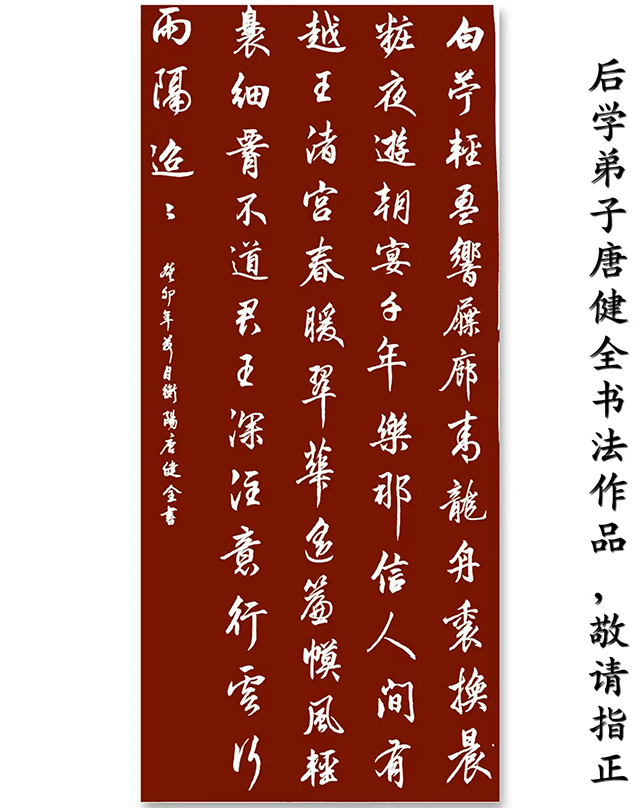 后学弟子唐健全书法作品，敬请指正
白苧輕盈響屧廊青龍舟裏換晨
粧夜遊朝宴千年樂那信人間有
越王渚宮春暖翠華遙簾幙風輕
裊細腰不道君王深注意行雲行
雨隔迢〻
癸卯年月衡陽唐健全書